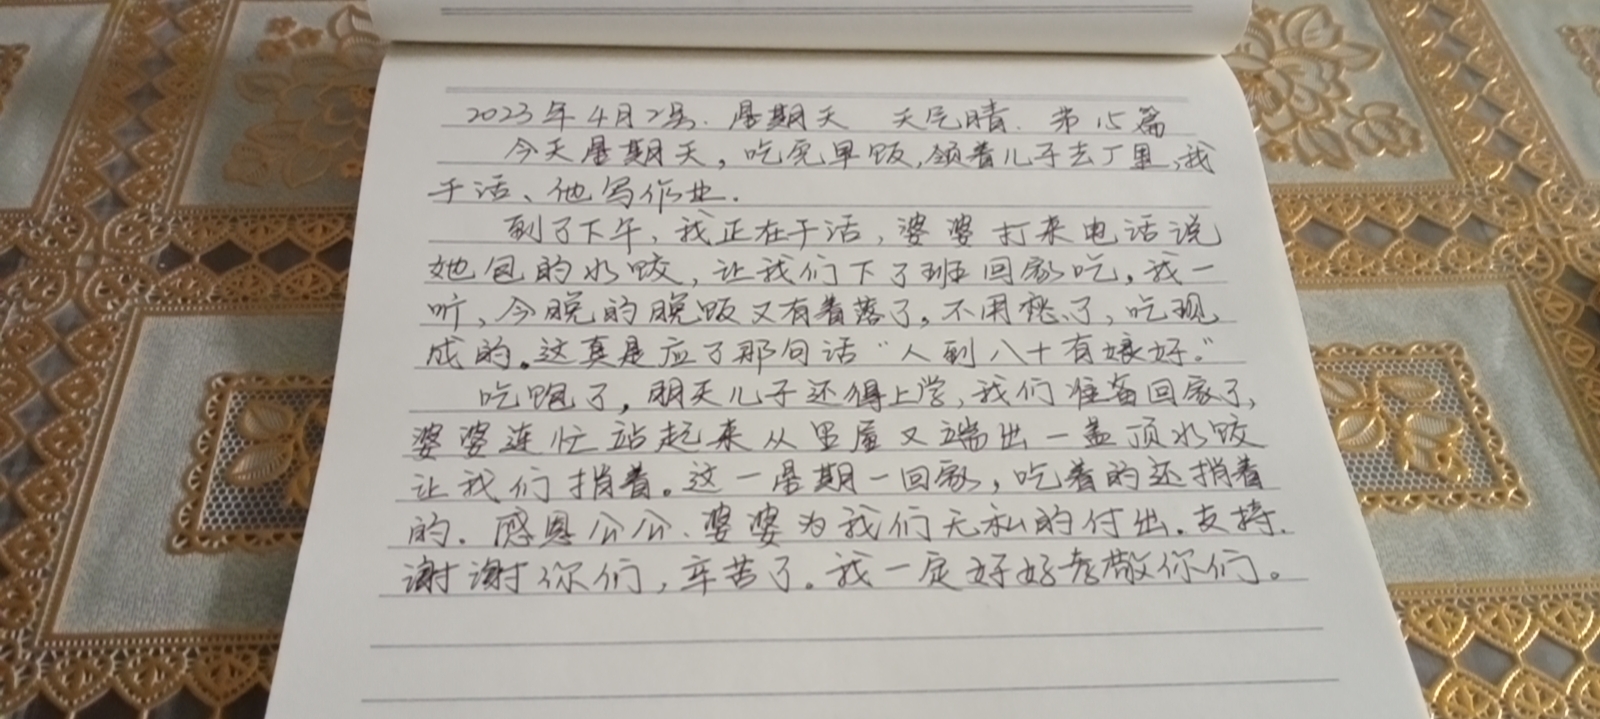 2023年4月2号.星期天 天气晴.第15篇
今天星期天,吃完早饭,领着儿子去厂里,我
干活、他写作业.
到了下午,我正在干活,婆婆打来电话说
她包的水饺,让我们下了班回家吃,我一
听,今晚的晚饭又有着落了。不用愁了,吃现
成的。这真是应了那句话“人到八十有娘好。”
吃饱了,明天儿子还得上学,我们准备回家了,
婆婆连忙站起来从里屋又端出一盖顶水饺
让我们捎着。这一星期一回家,吃着的还捎着
的.感恩公公、婆婆为我们无私的付出.支持.
谢谢你们,辛苦了。我一定好好孝敬你们。